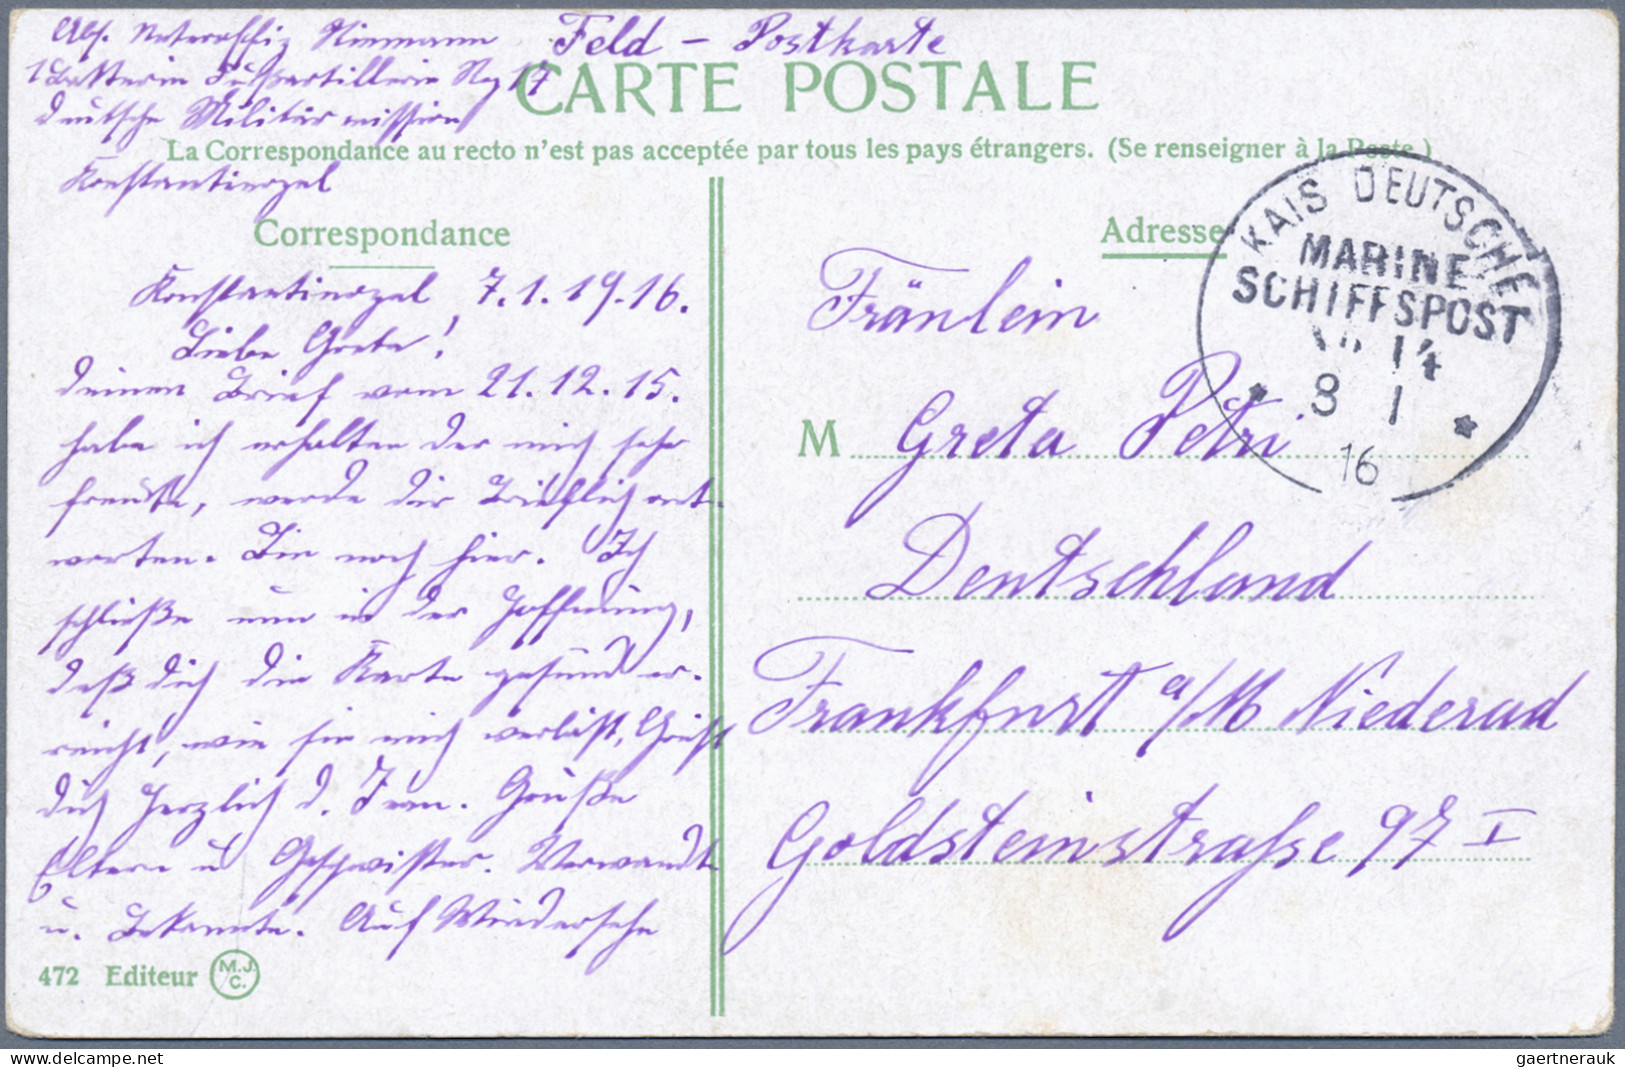 Abs. Unteroffiz Niemann
Feld – Postkarte
1 Batterie Fußartillerie Reg 17
CARTE POSTALE
deutsche Militärmission
La Correspondance au recto n'est pas acceptée par tous les pays étrangers. (Se renseigner à la Poste.)
Konstantinopel
Correspondance
Konstantinopel, 7.1.19.16.
Liebe Greta!
deinen Brief vom 21.12.15.
habe ich erhalten der mich sehr
freute, werde dir brieflich ant-
worten. Bin noch hier. Ich
schließe nun in der Hoffnung,
daß dich die Karte gesund er-
reicht, wie sie mich verläßt, Grüßt
dich herzlich d. Grüße
Eltern u Geschwister. Verwandte
u. Bekannte. Auf Wiedersehn
472 Editeur M.J.C.
Adresse
Fräulein
M Greta Petri
Deutschland
Frankfurt a/M Niederad
Goldsteinstraße 97 I
KAIS DEUTSCHE
MARINE
SCHIFFSPOST
No 14
8 1
16
www.delcampe.net
gaertnerauk